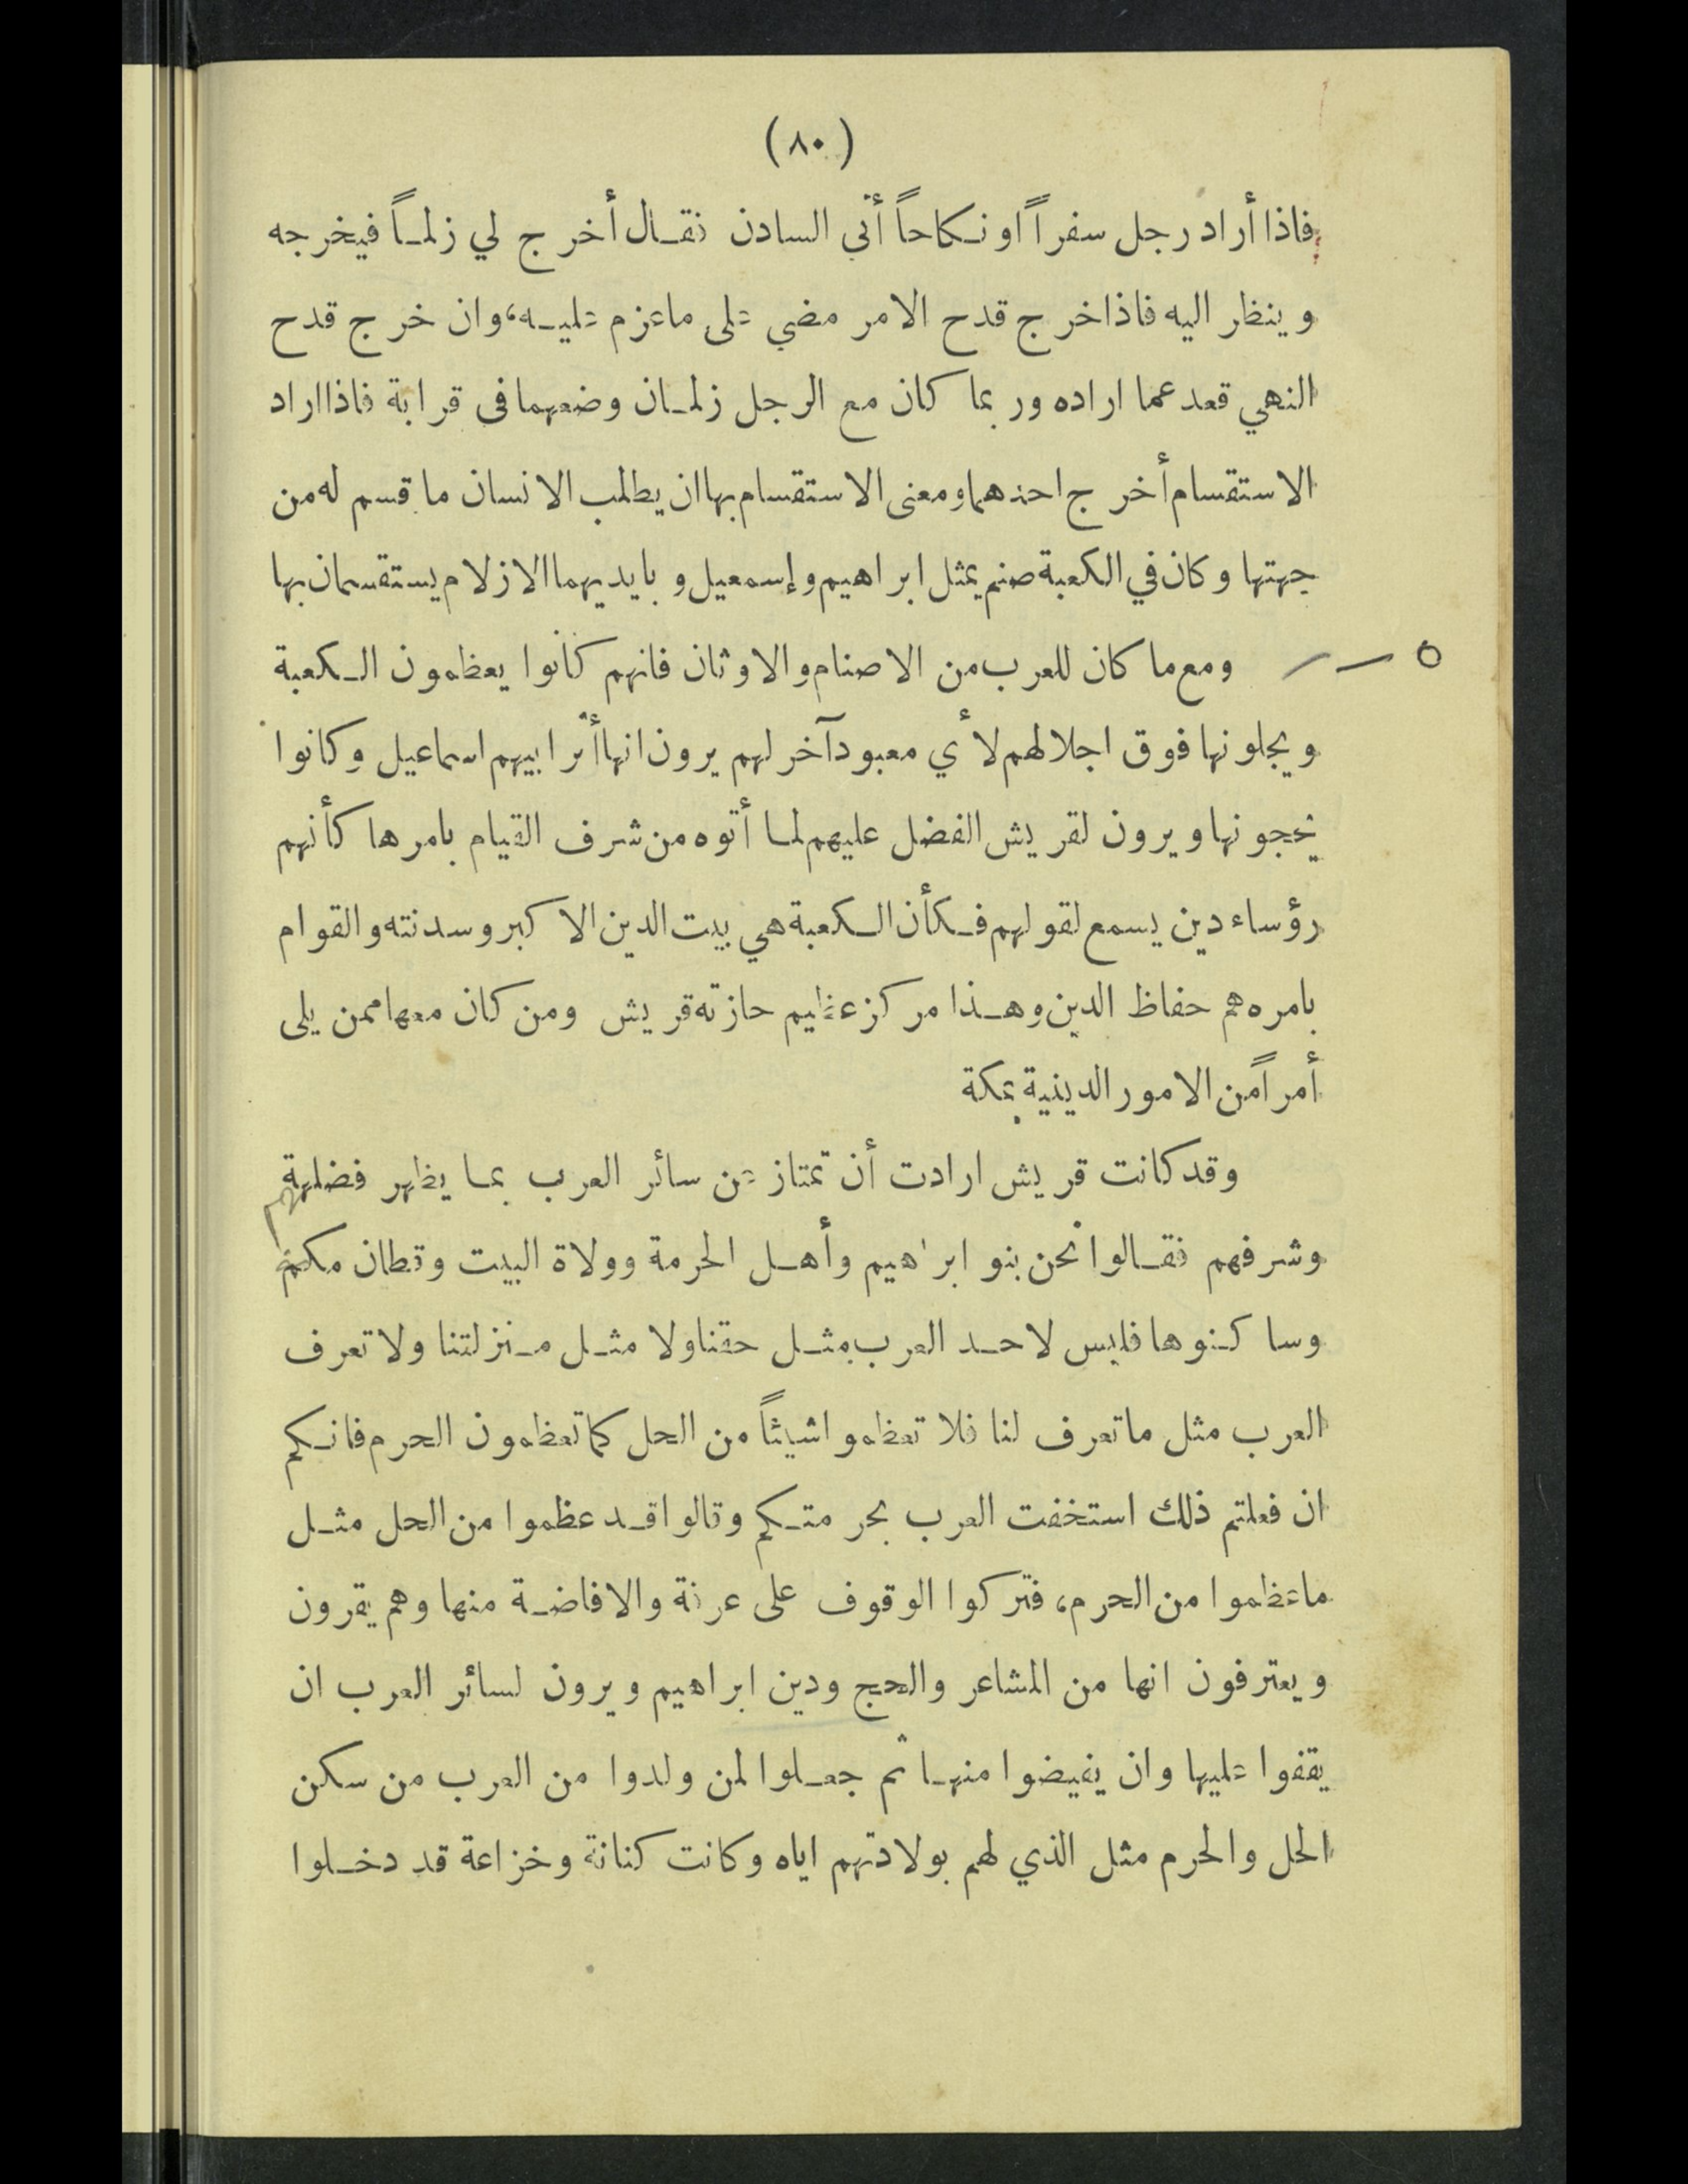 (٨٠)
فاذا أراد رجل سفراً او نكاحاً أتى السادن فقال أخرج لي زلماً فيخرجه
وينظر اليه فاذا خرج قدح الامر مضي على ماعزم عليه، وان خرج قدح
النهي قعد عما اراده وربما كان مع الرجل زلمان وضعهما فى قرابة فاذا اراد
الاستقسام أخرج احدهما ومعنى الاستقسام بها ان يطلب الانسان ما قسم له من
جهتها وكان في الكعبة صنم يمثل ابراهيم وإسمعيل وبايديهما الازلام يستقسمان بها
ومع ما كان للعرب من الاصنام والاوثان فانهم كانوا يعظمون الكعبة
ويجلونها فوق اجلالهم لأي معبود آخر لهم يرون انها أثر ابيهم اسماعيل وكانوا
يحجونها ويرون لقريش الفضل عليهم لما أتوه من شرف القيام بامرها كأنهم
رؤساء دين يسمع لقولهم فكأن الكعبة هي بيت الدين الاكبر وسدنته والقوام
بامره هم حفاظ الدين وهذا مركز عظيم حازته قريش ومن كان معها ممن يلى
أمراً من الامور الدينية بمكة
وقد كانت قريش ارادت أن تمتاز عن سائر العرب بما يظهر فضلهم
وشرفهم فقالوا نحن بنو ابراهيم وأهل الحرمة وولاة البيت وقطان مكة
وساكنوها فليس لاحد العرب مثل حقنا ولا مثل منزلتنا ولا تعرف
العرب مثل ما تعرف لنا فلا تعظموا شيئاً من الحل كما تعظمون الحرم فانكم
ان فعلتم ذلك استخفت العرب بحرمتكم وقالوا قد عظموا من الحل مثل
ماعظموا من الحرم، فتركوا الوقوف على عرفة والافاضة منها وهم يقرون
ويعترفون انها من المشاعر والحج ودين ابراهيم ويرون لسائر العرب ان
يقفوا عليها وان يفيضوا منها ثم جعلوا لمن ولدوا من العرب من سكن
الحل والحرم مثل الذي لهم بولادتهم اياه وكانت كنانة وخزاعة قد دخلوا